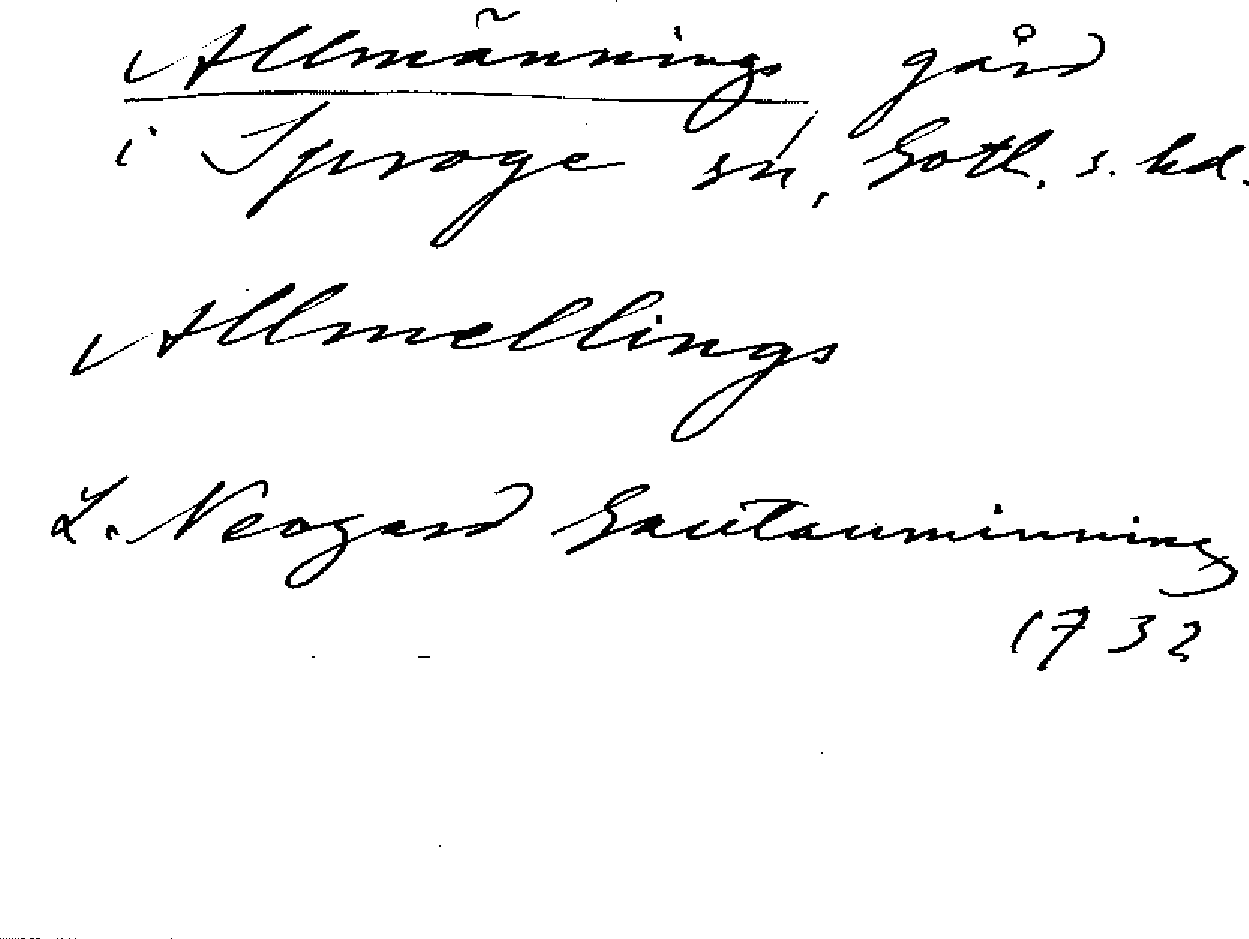 Allmännings gård
i Sproge sn, Gotl. s. hd.
Allmellings
L. Neogard Gautauminning
1732